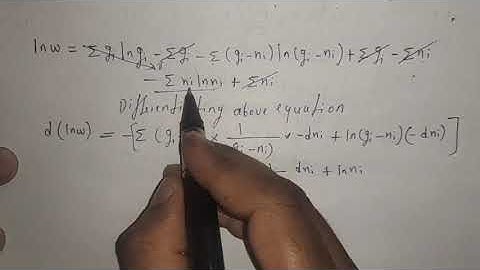 lnw = Σ gi ln gi - Σ gi - Σ (gi - ni) ln (gi - ni) + Σ gi - Σ ni
- Σ ni ln ni + Σ ni
Differentiating above equation
d (lnw) = - [ Σ (gi × 1/(gi - ni) × - dni + ln (gi - ni) (- dni) ]
- dni + ln ni